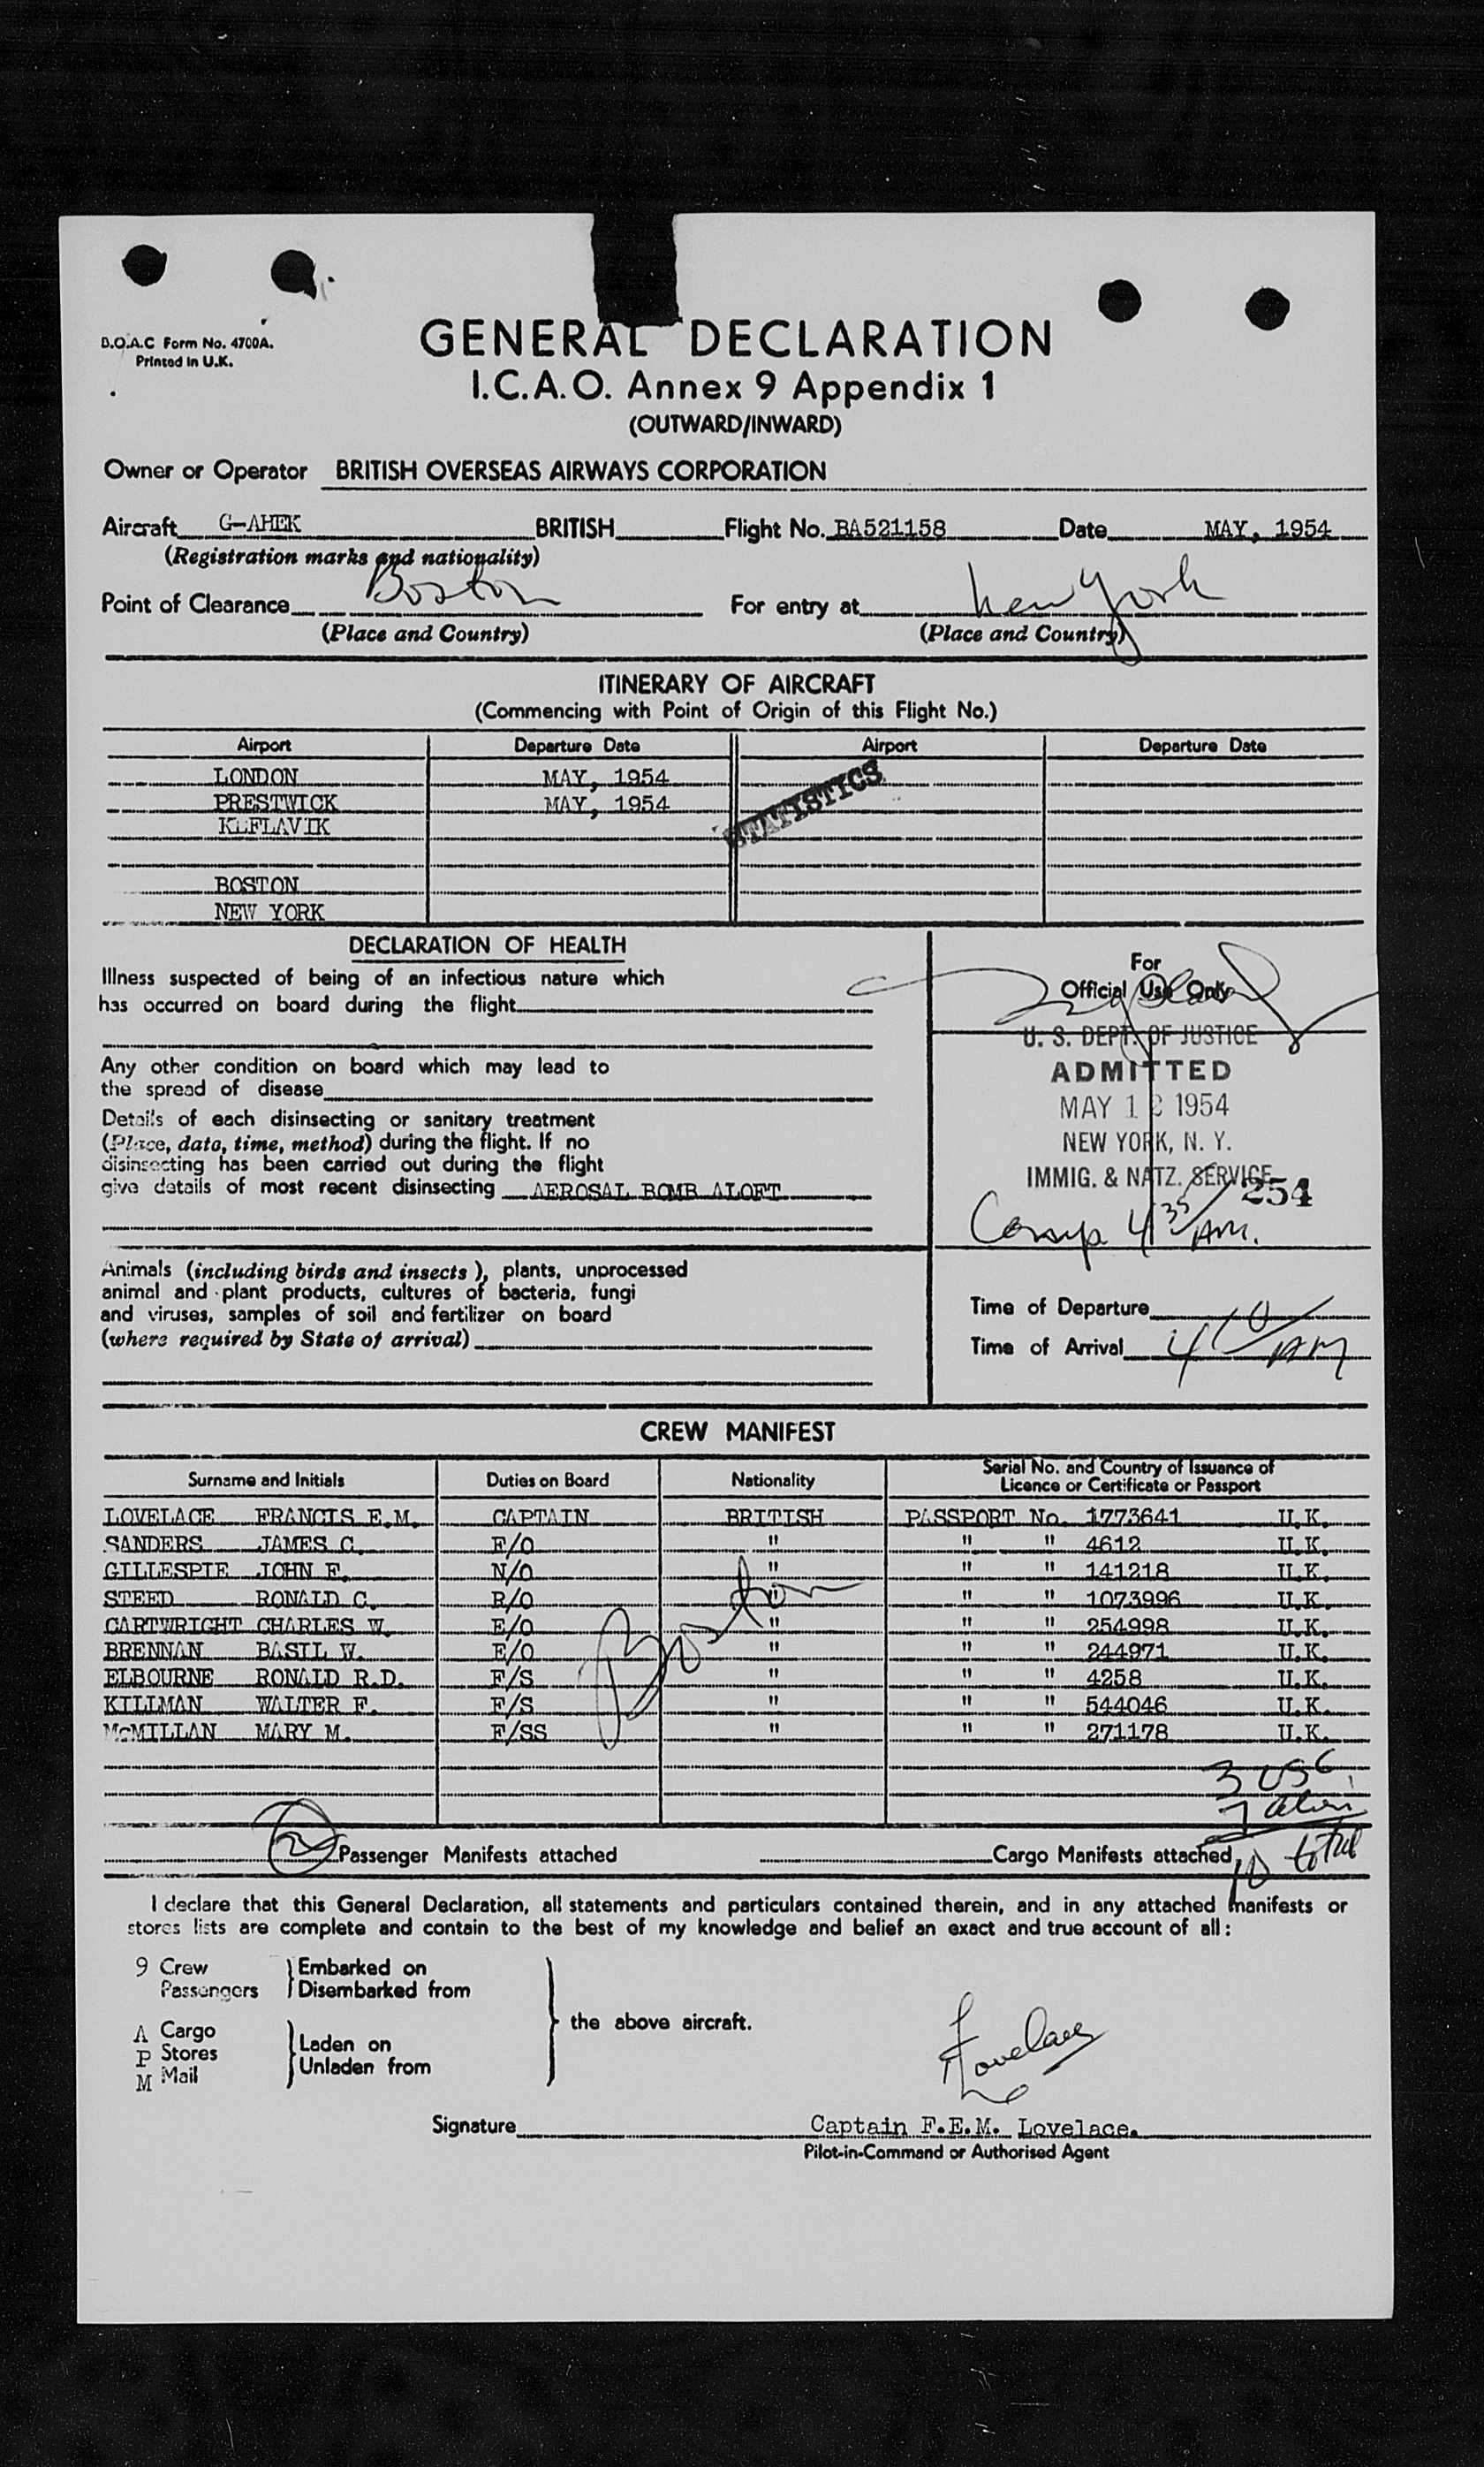 B.O.A.C Form No. 4700A.
Printed in U.K.
GENERAL DECLARATION
I.C.A.O. Annex 9 Appendix 1
(OUTWARD/INWARD)
Owner or Operator BRITISH OVERSEAS AIRWAYS CORPORATION
Aircraft G-AHEK BRITISH Flight No. BA521158 Date MAY, 1954
(Registration marks and nationality)
Point of Clearance Boston For entry at New York
(Place and Country) (Place and Country)
ITINERARY OF AIRCRAFT
(Commencing with Point of Origin of this Flight No.)
Airport Departure Date Airport Departure Date
LONDON MAY, 1954
PRESTWICK MAY, 1954
KEFLAVIK
STATISTICS
BOSTON
NEW YORK
DECLARATION OF HEALTH
Illness suspected of being of an infectious nature which
has occurred on board during the flight
Any other condition on board which may lead to
the spread of disease
Details of each disinsecting or sanitary treatment
(Place, data, time, method) during the flight. If no
disinsecting has been carried out during the flight
give details of most recent disinsecting AEROSAL BOMB ALOFT
For
Official Use Only
U. S. DEPT. OF JUSTICE
ADMITTED
MAY 12 1954
NEW YORK, N. Y.
IMMIG. & NATZ. SERVICE
254
Comp 4 35 AM.
Animals (including birds and insects), plants, unprocessed
animal and plant products, cultures of bacteria, fungi
and viruses, samples of soil and fertilizer on board
(where required by State of arrival)
Time of Departure
Time of Arrival 4 10 AM
CREW MANIFEST
Surname and Initials Duties on Board Nationality Serial No. and Country of Issuance of
Licence or Certificate or Passport
LOVELACE FRANCIS E.M. CAPTAIN BRITISH PASSPORT No. 1773641 U.K.
SANDERS JAMES C. F/O " " " 4612 U.K.
GILLESPIE JOHN E. N/O " " " 141218 U.K.
STEED RONALD C. R/O " " " 1073996 U.K.
CARTWRIGHT CHARLES W. E/O " " " 254998 U.K.
BRENNAN BASIL W. E/O " " " 244971 U.K.
ELBOURNE RONALD R.D. F/S " " " 4258 U.K.
KILLMAN WALTER F. F/S " " " 544046 U.K.
McMILLAN MARY M. F/SS " " " 271178 U.K.
Boston
3 USC
7 alien
10 total
2 Passenger Manifests attached Cargo Manifests attached
I declare that this General Declaration, all statements and particulars contained therein, and in any attached manifests or
stores lists are complete and contain to the best of my knowledge and belief an exact and true account of all:
9 Crew Embarked on
Passengers Disembarked from
the above aircraft.
A Cargo
P Stores
M Mail
Laden on
Unladen from
F Lovelace
Signature Captain F.E.M. Lovelace.
Pilot-in-Command or Authorised Agent